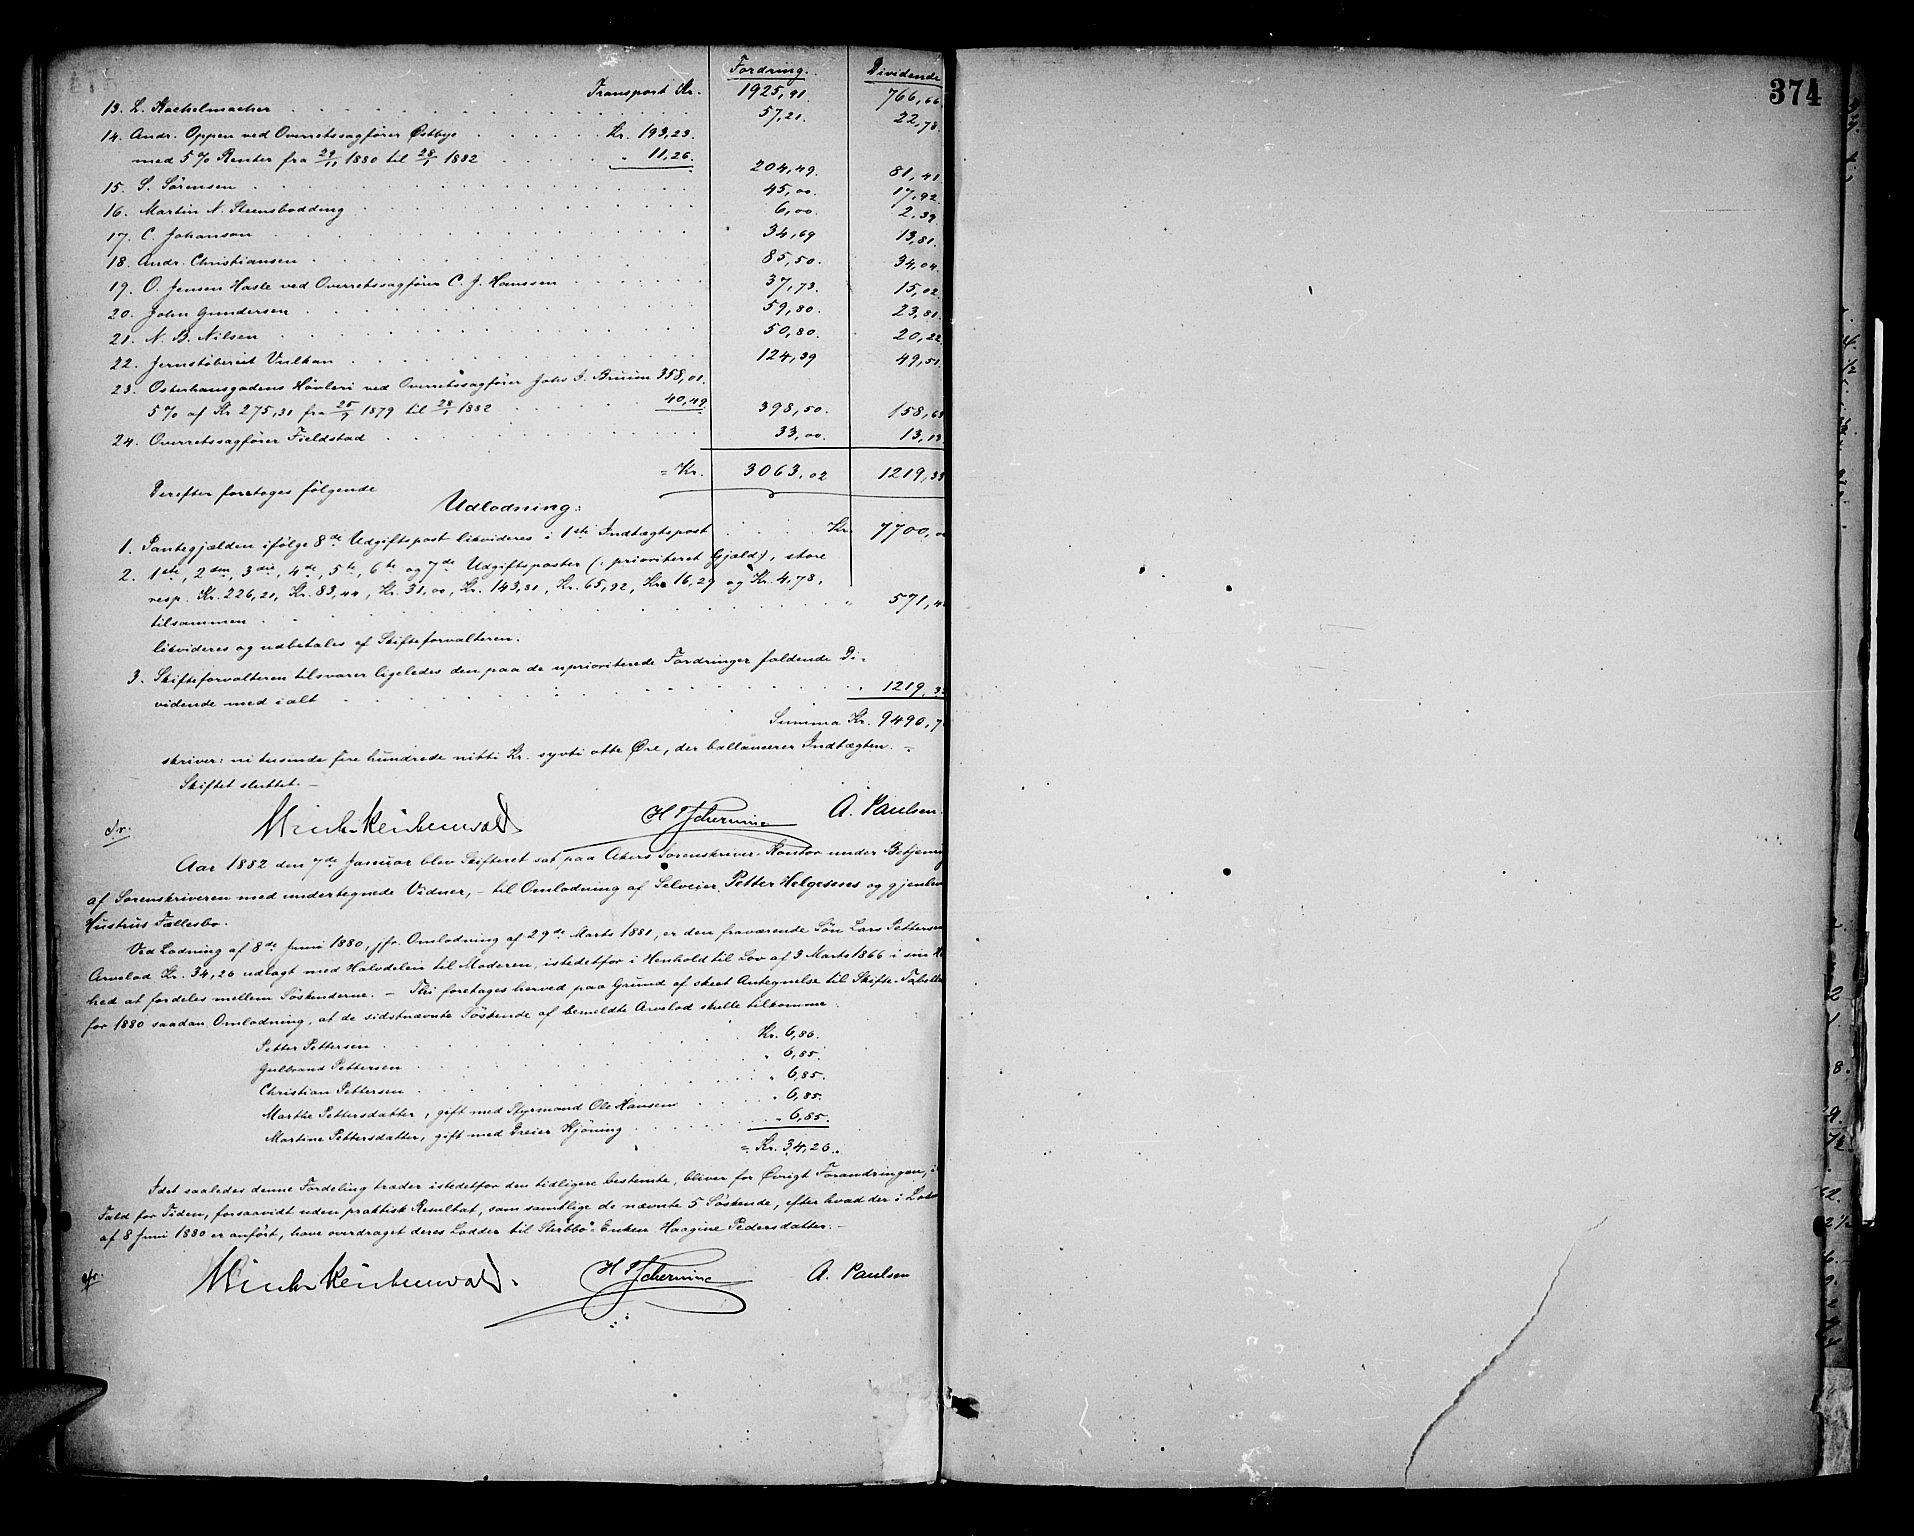 Fordring. Dividende
Transport Kr. 1925,91. 766,66
13. L. Kachelmacher 57,21. 22,78.
14. Andr. Oppen ved Overretssagfører Østbye Kr. 193,23.
med 5 % Renter fra 29/11 1880 til 28/1 1882 " 11,26. 204,49. 81,41
15. S. Sørensen 45,00. 17,92.
16. Martin N. Steensbødding 6,00. 2,39
17. C. Johanson 34,69 13,81.
18. Andr. Christiansen 85,50. 34,04.
19. O. Jensen Hasle ved Overretssagfører C. J. Hanssen 37,73. 15,02
20. John Gundersen 59,80. 23,81
21. N. B. Nilsen 50,80. 20,22
22. Jernstøberiet Vulkan 124,39 49,51
23. Osterhausgadens Høvleri ved Overretssagfører Johs J. Bruun 358,01.
5 % af Kr. 275,31 fra 25/2 1879 til 28/1 1882 40,49 398,50. 158,63
24. Overretssagfører Fieldstad 33,00. 13,13.
= Kr. 3063,02 1219,33
Derefter foretoges følgende
Udlodning:
1. Pantegjælden ifølge 8de Udgiftspost likvideres i 1ste Indtægtspost Kr. 7700,00
2. 1ste, 2den, 3die, 4de, 5te, 6te og 7de Udgiftsposter (: prioriteret Gjæld:), store
resp. Kr. 226,21, Kr. 83,44, Kr. 31,00, Kr. 143,81, Kr. 65,92, Kr. 16,29 og Kr. 4,78,
tilsammen " 571,4
likvideres og udbetales af Skifteforvalteren.
3. Skifteforvalteren tilsvarer ligeledes den paa de uprioriterede Fordringer faldende Di-
vidende med ialt 1219,33
Summa Kr. 9490,7
skriver: ni tusinde fire hundrede nitti Kr. sytti otte Øre, der ballancerer Indtægten. –
Skiftet sluttet. –
H Tscherning A. Paulsen.
Aar 1882 den 7de Januar blev Skifteret sat paa Akers Sorenskriver-Kontor under Betjening
af Sorenskriveren med undertegnede Vidner, – til Omlodning af Selveier Petter Helgesens og gjenlev
Hustrus Fællesbo.
Ved Lodning af 8de Juni 1880, jfr. Omlodning af 29de Marts 1881, er den fraværende Søn Lars Pettersen
Arvelod Kr. 34,26 udlagt med Halvdelen til Moderen, istedetfor i Henhold til Lov af 3 Marts 1866 i sin
hed at fordeles mellem Søskenderne. – Thi foretages herved paa Grund af skeet Antegnelse til Skifte-Tabellen
for 1880 saadan Omlodning, at de sidstnævnte Søskende af bemeldte Arvelod skulle tilkomme:
Petter Pettersen Kr. 6,86.
Gulbrand Pettersen " 6,85.
Christian Pettersen " 6,85.
Marthe Pettersdatter, gift med Styrmand Ole Hansen " 6,85.
Martine Pettersdatter, gift med Dreier Hjøning " 6,85.
= Kr. 34,26.
Idet saaledes denne Fordeling træder istedetfor den tidligere bestemte, bliver for Øvrigt Forandringen, i
Fald for Tiden, forsaavidt uden praktisk Resultat, som samtlige de nævnte 5 Søskende, efter hvad der i Lodn
af 8 Juni 1880 er anført, have overdraget deres Lodder til Sterbbo-Enken Haagine Pedersdatter. –
H Tscherning A. Paulsen
374